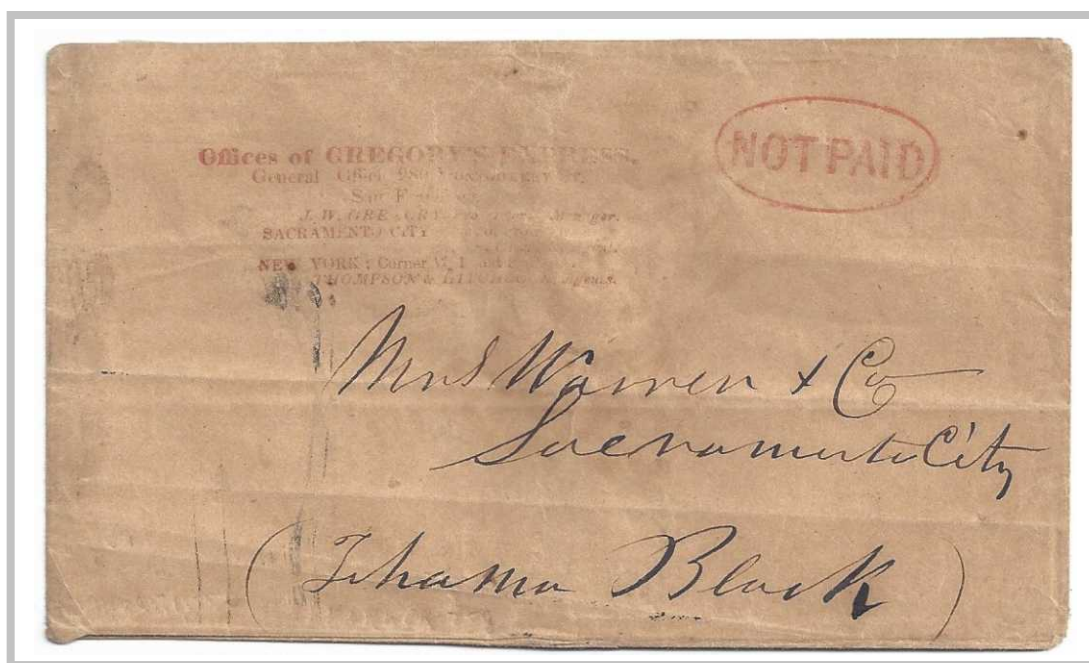 Offices of GREGORY'S EXPRESS,
General Office 280 MONTGOMERY ST.
San
J. W. GREGORY, Manager.
SACRAMENTO CITY
NEW YORK : Corner
THOMPSON & Agents.
NOT PAID
Warren & Co
Sacramento City
(Tehama Block)